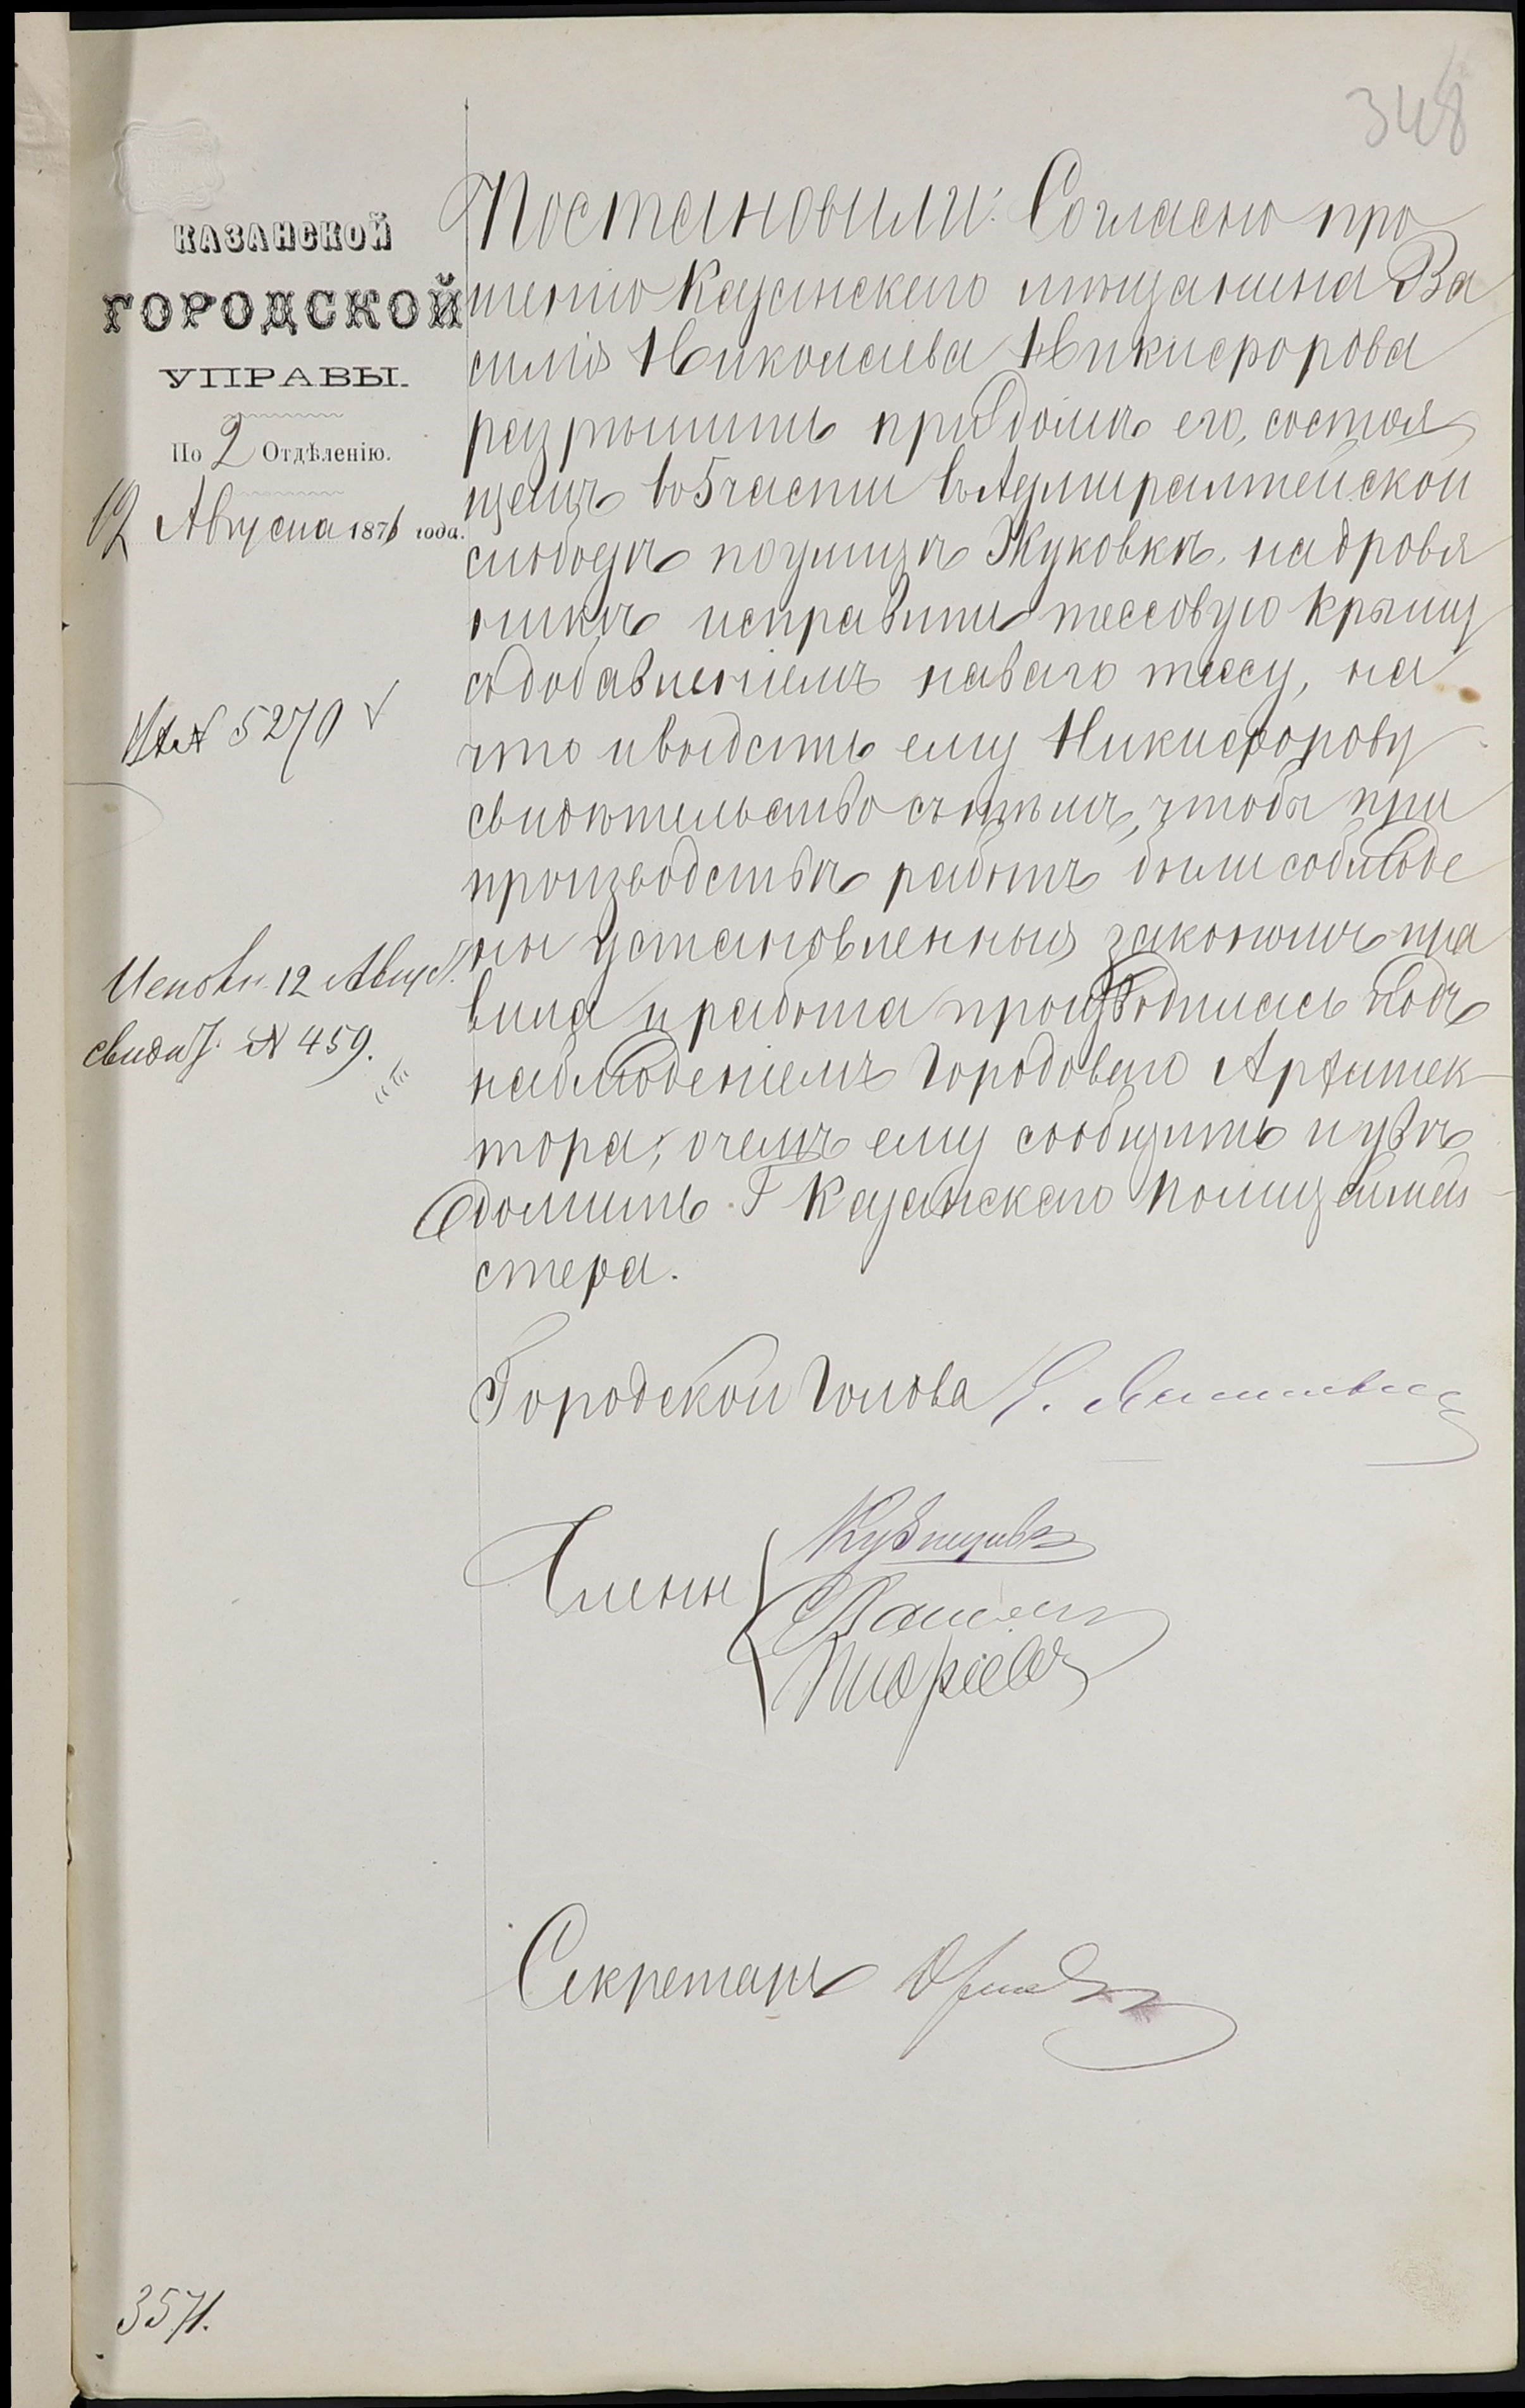 348
КАЗАНСКОЙ
ГОРОДСКОЙ
УПРАВЫ.
По 2 Отдѣленію.
12 Августа 1876 года.
№ 5270
Исполн. 12 Авгус.
свидѣт. № 459.
Постановили: Согласно про
шенію Казанскаго мѣщанина Ва
силія Николаева Никифорова
разрѣшить при домѣ его, состоя
щемъ въ 5 части въ Адмиралтейской
слободѣ по улицѣ Жуковкѣ, на дровя
никѣ исправить тесовую крышу
съ добавленіемъ новаго тесу, на
что и выдать ему Никифорову
свидѣтельство съ тѣмъ, чтобы при
производствѣ работъ были соблюде
ны установленныя закономъ пра
вила и работа производилась подъ
наблюденіемъ Городоваго Архитек
тора; о чемъ ему сообщить и увѣ
домить Г Казанскаго Полицiймей
стера.
Городской Голова
Члены
Кузнецовъ
Секретарь
3571.